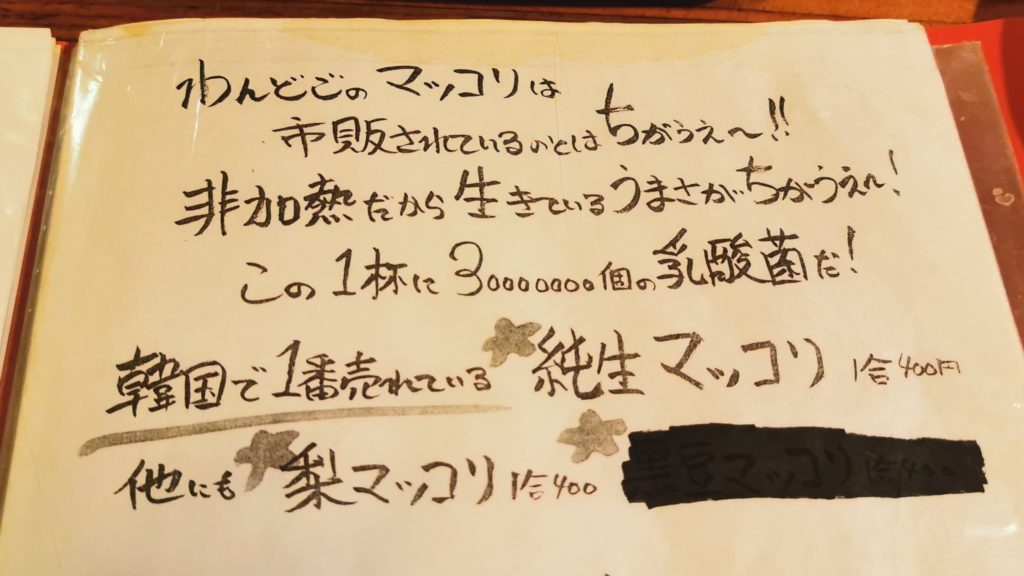 わんどごのマッコリは
市販されているのとはちがうぇ〜!!
非加熱だから生きているうまさがちがうぇ〜!
この1杯に30000000個の乳酸菌だ!
韓国で1番売れている 純生マッコリ 1合400円
他にも 梨マッコリ 1合400 黒豆マッコリ 1合400